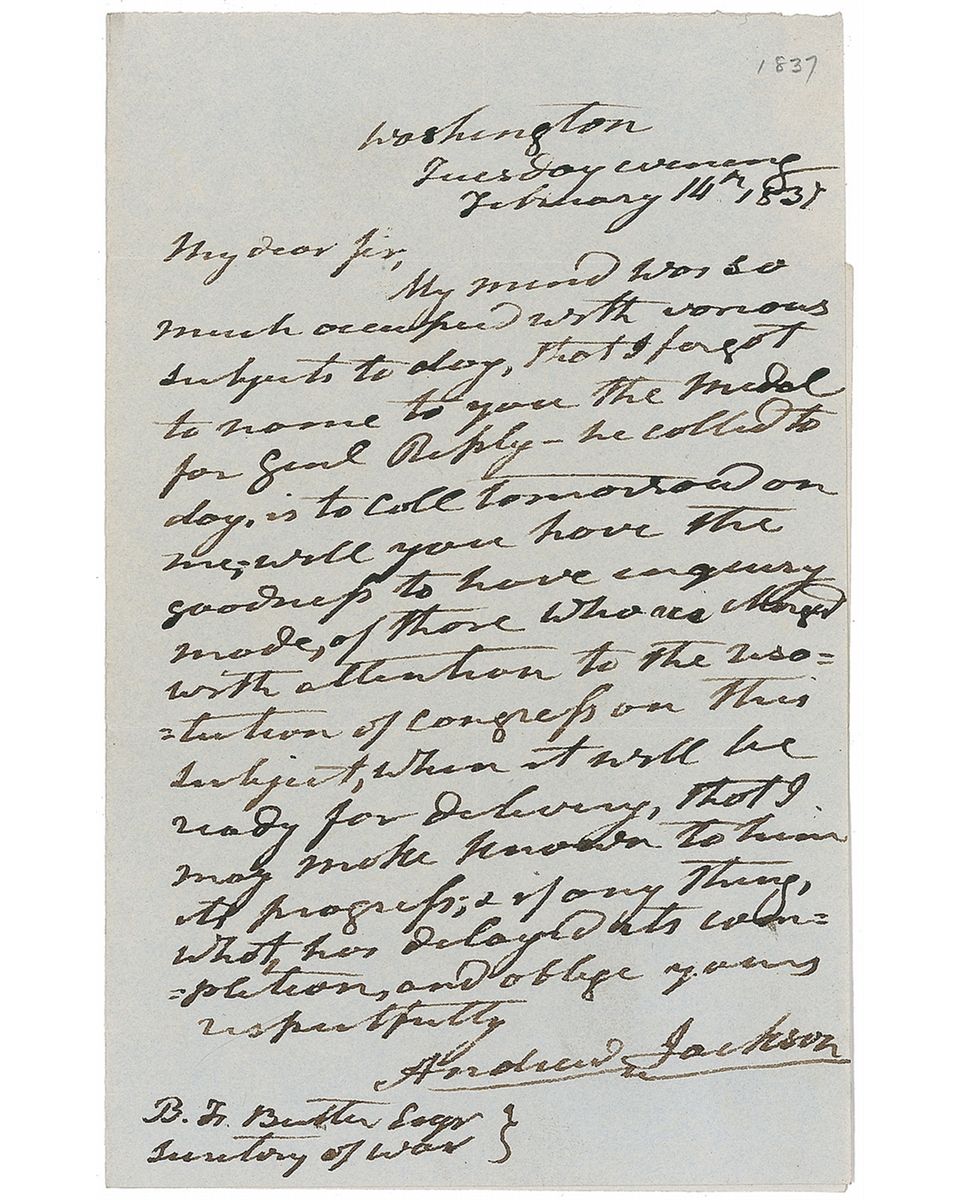 1837
Washington
Tuesday evening
February 14th 1837
My dear Sir,
My mind was so
much occupied with various
subjects to day, that I forgot
to name to you the Medal
for Genl Ripley – he called to
day, is to call tomorrow on
me, will you have the
goodness to have enquiry
made, of those who is charged
with attention to the reso=
=lution of congress on this
subject, when it will be
ready for delivery, that I
may make known to him
its progress; & if any thing,
what, has delayed its com=
=pletion, and oblige yours
respectfully
Andrew Jackson
B. F. Butler Esqr
Secretary of War